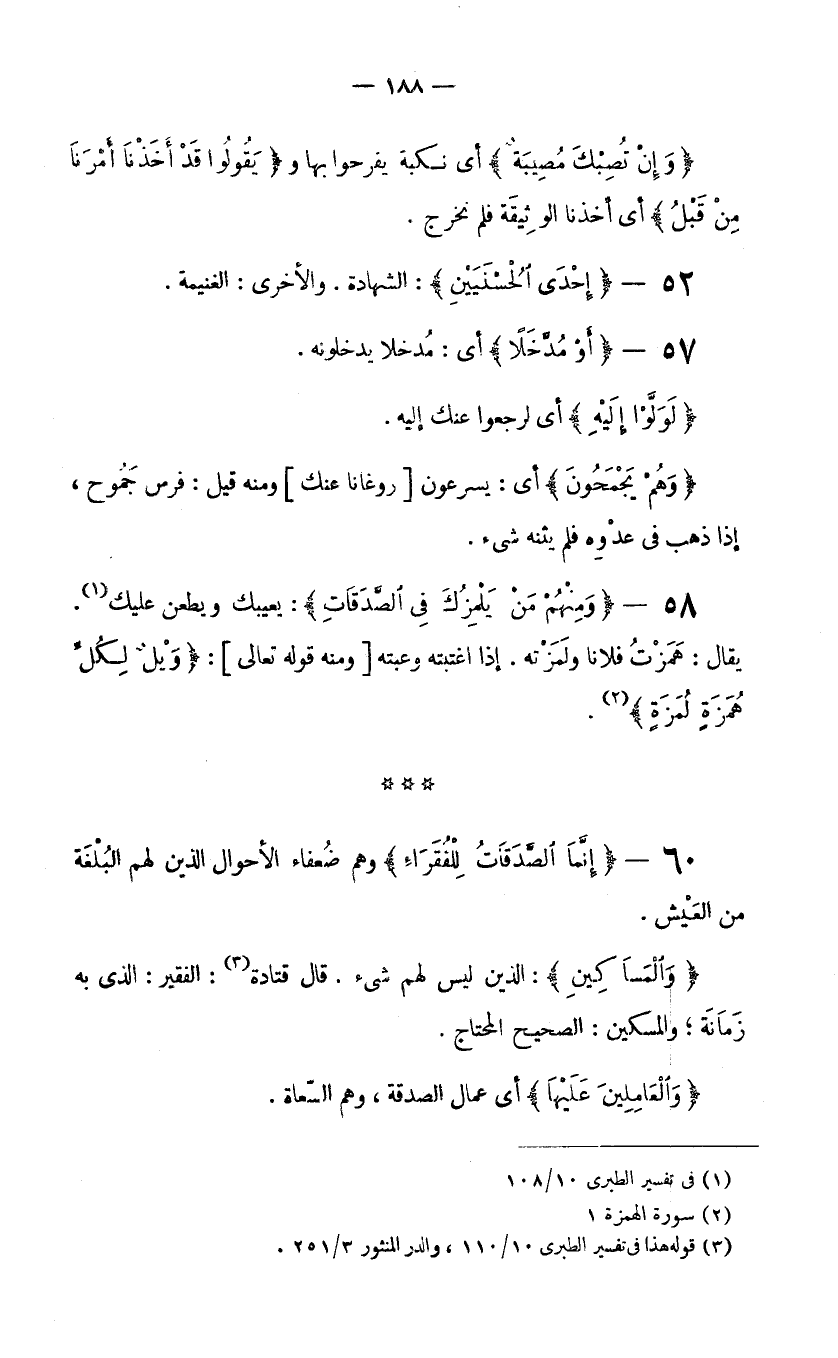 — ١٨٨ —
﴿ وَإِنْ تُصِبْكَ مُصِيبَةٌ ﴾ أى نكبة يفرحوا بها و ﴿ يَقُولُوا قَدْ أَخَذْنَا أَمْرَنَا
مِنْ قَبْلُ ﴾ أى أخذنا الوثِيقَة فلم نخرج .
٥٢ — ﴿ إِحْدَى ٱلْحُسْنَيَيْنِ ﴾ : الشهادة . والأخرى : الغنيمة .
٥٧ — ﴿ أَوْ مُدَّخَلًا ﴾ أى : مُدخلا يدخلونه .
﴿ لَوَلَّوْا إِلَيْهِ ﴾ أى لرجعوا عنك إليه .
﴿ وَهُمْ يَجْمَحُونَ ﴾ أى : يسرعون [ روغانا عنك ] ومنه قيل : فرس جَمُوح ،
إذا ذهب فى عدْوِه فلم يثنه شىء .
٥٨ — ﴿ وَمِنْهُمْ مَنْ يَلْمِزُكَ فِى ٱلصَّدَقَاتِ ﴾ : يعيبك ويطعن عليك(١).
يقال : هَمَزْتُ فلانا ولَمَزْته . إذا اغتبته وعبته [ ومنه قوله تعالى ] : ﴿ وَيْلٌ لِكُلِّ
هُمَزَةٍ لُمَزَةٍ ﴾(٢) .
* * *
٦٠ — ﴿ إِنَّمَا ٱلصَّدَقَاتُ لِلْفُقَرَاءِ ﴾ وهم ضُعفاء الأحوال الذين لهم البُلْغَة
من العَيْش .
﴿ وَٱلْمَسَاكِينِ ﴾ : الذين ليس لهم شىء . قال قتادة(٣) : الفقير : الذى به
زَمَانَة ؛ والمسكين : الصحيح المحتاج .
﴿ وَٱلْعَامِلِينَ عَلَيْهَا ﴾ أى عمال الصدقة ، وهم السّعاة .
(١) فى تفسير الطبرى ١٠٨/١٠
(٢) سورة الهمزة ١
(٣) قوله هذا فى تفسير الطبرى ١١٠/١٠ ، والدر المنثور ٢٥١/٣ .